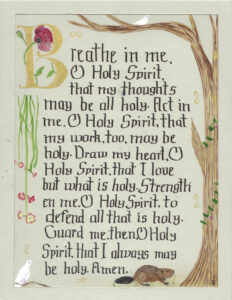 Breathe in me,
O Holy Spirit,
that my thoughts
may be all holy. Act in
me, O Holy Spirit, that
my work, too, may be
holy. Draw my heart, O
Holy Spirit, that I love
but what is holy. Strength
en me, O Holy Spirit, to
defend all that is holy.
Guard me, then, O Holy
Spirit, that I always may
be holy. Amen.